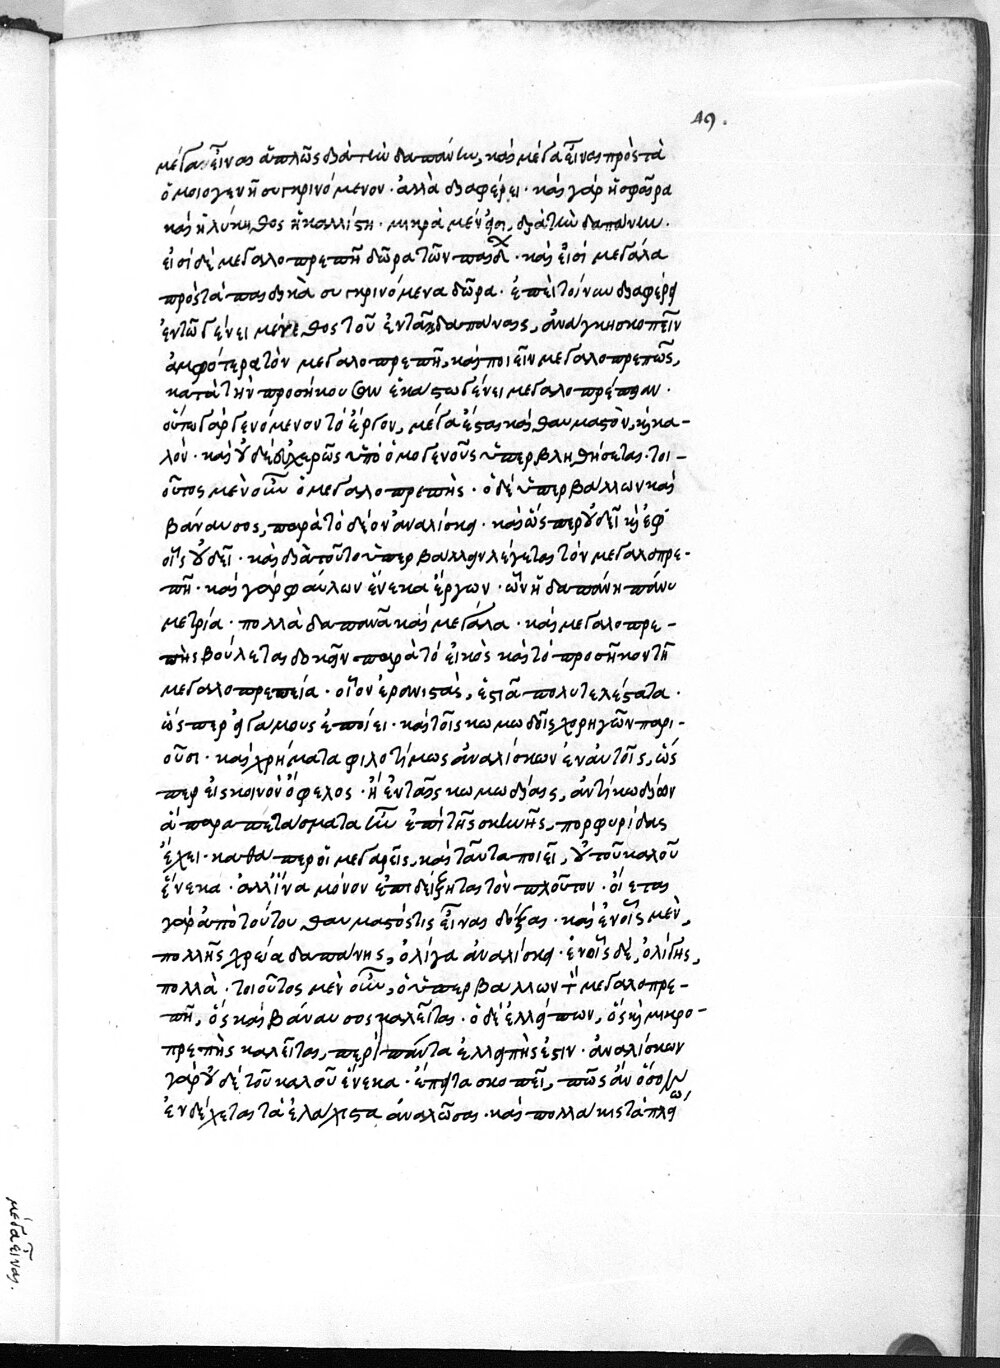 49.
μέγα εἶναι ἁπλῶς διὰ τὴν δαπάνην, καὶ μέγα εἶναι πρὸς τὰ
ὁμοιογενῆ συγκρινόμενον· ἀλλὰ διαφέρει· καὶ γὰρ ἡ σφαῖρα
καὶ ἡ λύκηθος ἡ καλλίστη· μικρὰ μέν εἰσι, διὰ τὴν δαπάνην·
εἰσὶ δὲ μεγαλοπρεπῆ δῶρα τῶν παιδ· καὶ εἰσὶ μεγάλα
πρὸς τὰ παιδικὰ συγκρινόμενα δῶρα· ἐπεὶ τοίνυν διαφέρει
ἐν τῷ γένει μέγεθος τοῦ ἐν ταῖς δαπάναις, ἀνάγκη σκοπεῖν
ἀμφότερα τὸν μεγαλοπρεπῆ, καὶ ποιεῖν μεγαλοπρεπῶς,
κατὰ τὴν προσήκουσαν ἑκάστῳ γένει μεγαλοπρέπειαν·
οὕτω γὰρ γενόμενον τὸ ἔργον, μέγα ἔσται καὶ θαυμαστὸν, καὶ κα-
λόν· καὶ οὐδὲ διχερῶς ὑπὸ ὁμογενοῦς ὑπερβληθήσεται· τοι-
οῦτος μὲν οὖν ὁ μεγαλοπρεπής· ὁ δὲ ὑπερβάλλων καὶ
βάναυσος, παρὰ τὸ δέον ἀναλίσκει· καὶ ὥσπερ οὐ δεῖ καὶ ἐφ'
οἷς οὐ δεῖ· καὶ διὰ τοῦτο ὑπερβάλλειν λέγεται τὸν μεγαλοπρε-
πῆ· καὶ γὰρ φαύλων ἕνεκα ἔργων· ὧν ἡ δαπάνη πάνυ
μετρία· πολλὰ δαπανᾶ καὶ μεγάλα· καὶ μεγαλοπρε-
πὴς βούλεται δοκεῖν παρὰ τὸ εἰκὸς καὶ τὸ προσῆκον τῆ
μεγαλοπρεπεία· οἷον ἐρανιστὰς, ἑστιᾶ πολυτελέστατα·
ὥσπερ εἰ γάμους ἐποίει· καὶ τοῖς κωμωδοῖς χορηγῶν παρι-
οῦσι· καὶ χρήματα φιλοτίμως ἀναλίσκων ἐν αὐτοῖς, ὥς
περ εἰς κοινὸν ὄφελος· ἢ ἐν ταῖς κωμωδίαις, ἀντὶ κωδίων
ἃ παραπετάσματα ἦν ἐπὶ τῆς σκηνῆς, πορφυρίδας
ἔχει· καθάπερ οἱ μεγαρεῖς, καὶ ταῦτα ποιεῖ, οὐ τοῦ καλοῦ
ἕνεκα· ἀλλ' ἵνα μόνον ἐπιδείξηται τὸν πλοῦτον· οἴεται
γὰρ ἀπὸ τούτου θαυμαστός τις εἶναι δόξαι· καὶ ἐν οἷς μὲν,
πολλῆς χρεία δαπάνης, ὀλίγα ἀναλίσκει· ἐν οἷς δὲ, ὀλίγης,
πολλὰ· τοιοῦτος μὲν οὖν, ὁ ὑπερβάλλων τὸν μεγαλοπρε-
πῆ, ὃς καὶ βάναυσος καλεῖται· ὁ δὲ ἐλλείπων, ὃς καὶ μικρο-
πρεπὴς καλεῖται, περὶ πάντα ἐλλειπὴς ἐστιν· ἀναλίσκων
γὰρ οὐδὲ τοῦ καλοῦ ἕνεκα· ἔπειτα σκοπεῖ, πῶς ἂν ὅσον
ἐνδέχεται τὰ ἐλάχιστα ἀναλῶσαι· καὶ πολλάκις τὰ πλείω
μέγα εἶναι.